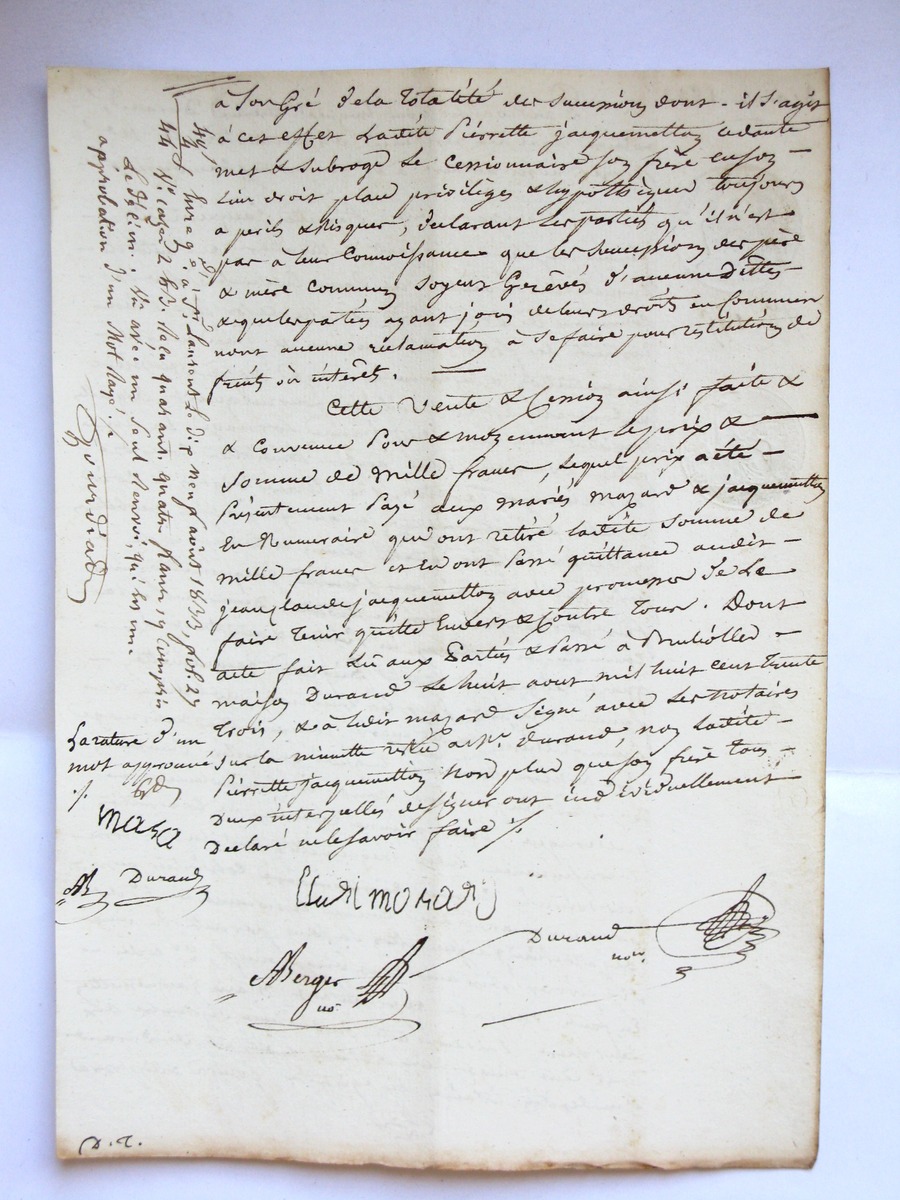 à son Gré de la totalité des successions dont - il s'agit
à cet effet Ladite Pierrette jacquemetton cedante
met & subroge Le Cessionnaire son frère en son
Lieu droit place priviléges & hypothèques toujours
a perils & Risques, declarant les parties qu'il n'est
pas à leur Connoissance que les successions des père
& mère communs soyent Grévés d'aucune dettes
& que les partiés ayant joui de leurs droits en Commun
n'ont aucune réclamation à se faire pour restitution de
fruits où interêts.
Cette Vente & Cession ainsi faite &
& convenue Pour & moyennant le prix &
Somme de Mille francs, Lequel prix a été -
Présentement Payé aux mariés mazard & jacquemetton
En Numeraire qui ont retiré ladite somme de
mille francs et En ont Passé quittance audit -
jean Claude jacquemetton avec promesse de Le
faire tenir quitte Envers & Contre Tous. Dont
acte fait Lû aux Parties & Passé à Brullolles -
maison Durand Le huit aout mil huit cent trente
Trois, & a Ledit mazard Signé avec Les Notaires
sur la minutte restée a Me. Durand, non ladite -
Pierrette jacquemetton Non plus que son frère tous
Deux interpellés de signer ont individuellement
Declaré ne le savoir faire ./.
Durand
nore.
ABerger
no.
Enreg.é à St. Laurent Le dix neuf aoùt 1833, fol. 27
Vo. cases 2 & 3. Reçu quarante quatre francs 19 Compris
Le décime. Vu avec un seul renvoi qui les une
approbation d'un Mot Rayé ./.
44
La rature d'un
mot approuvé
./.
Maza
AB
Durand
D. T.